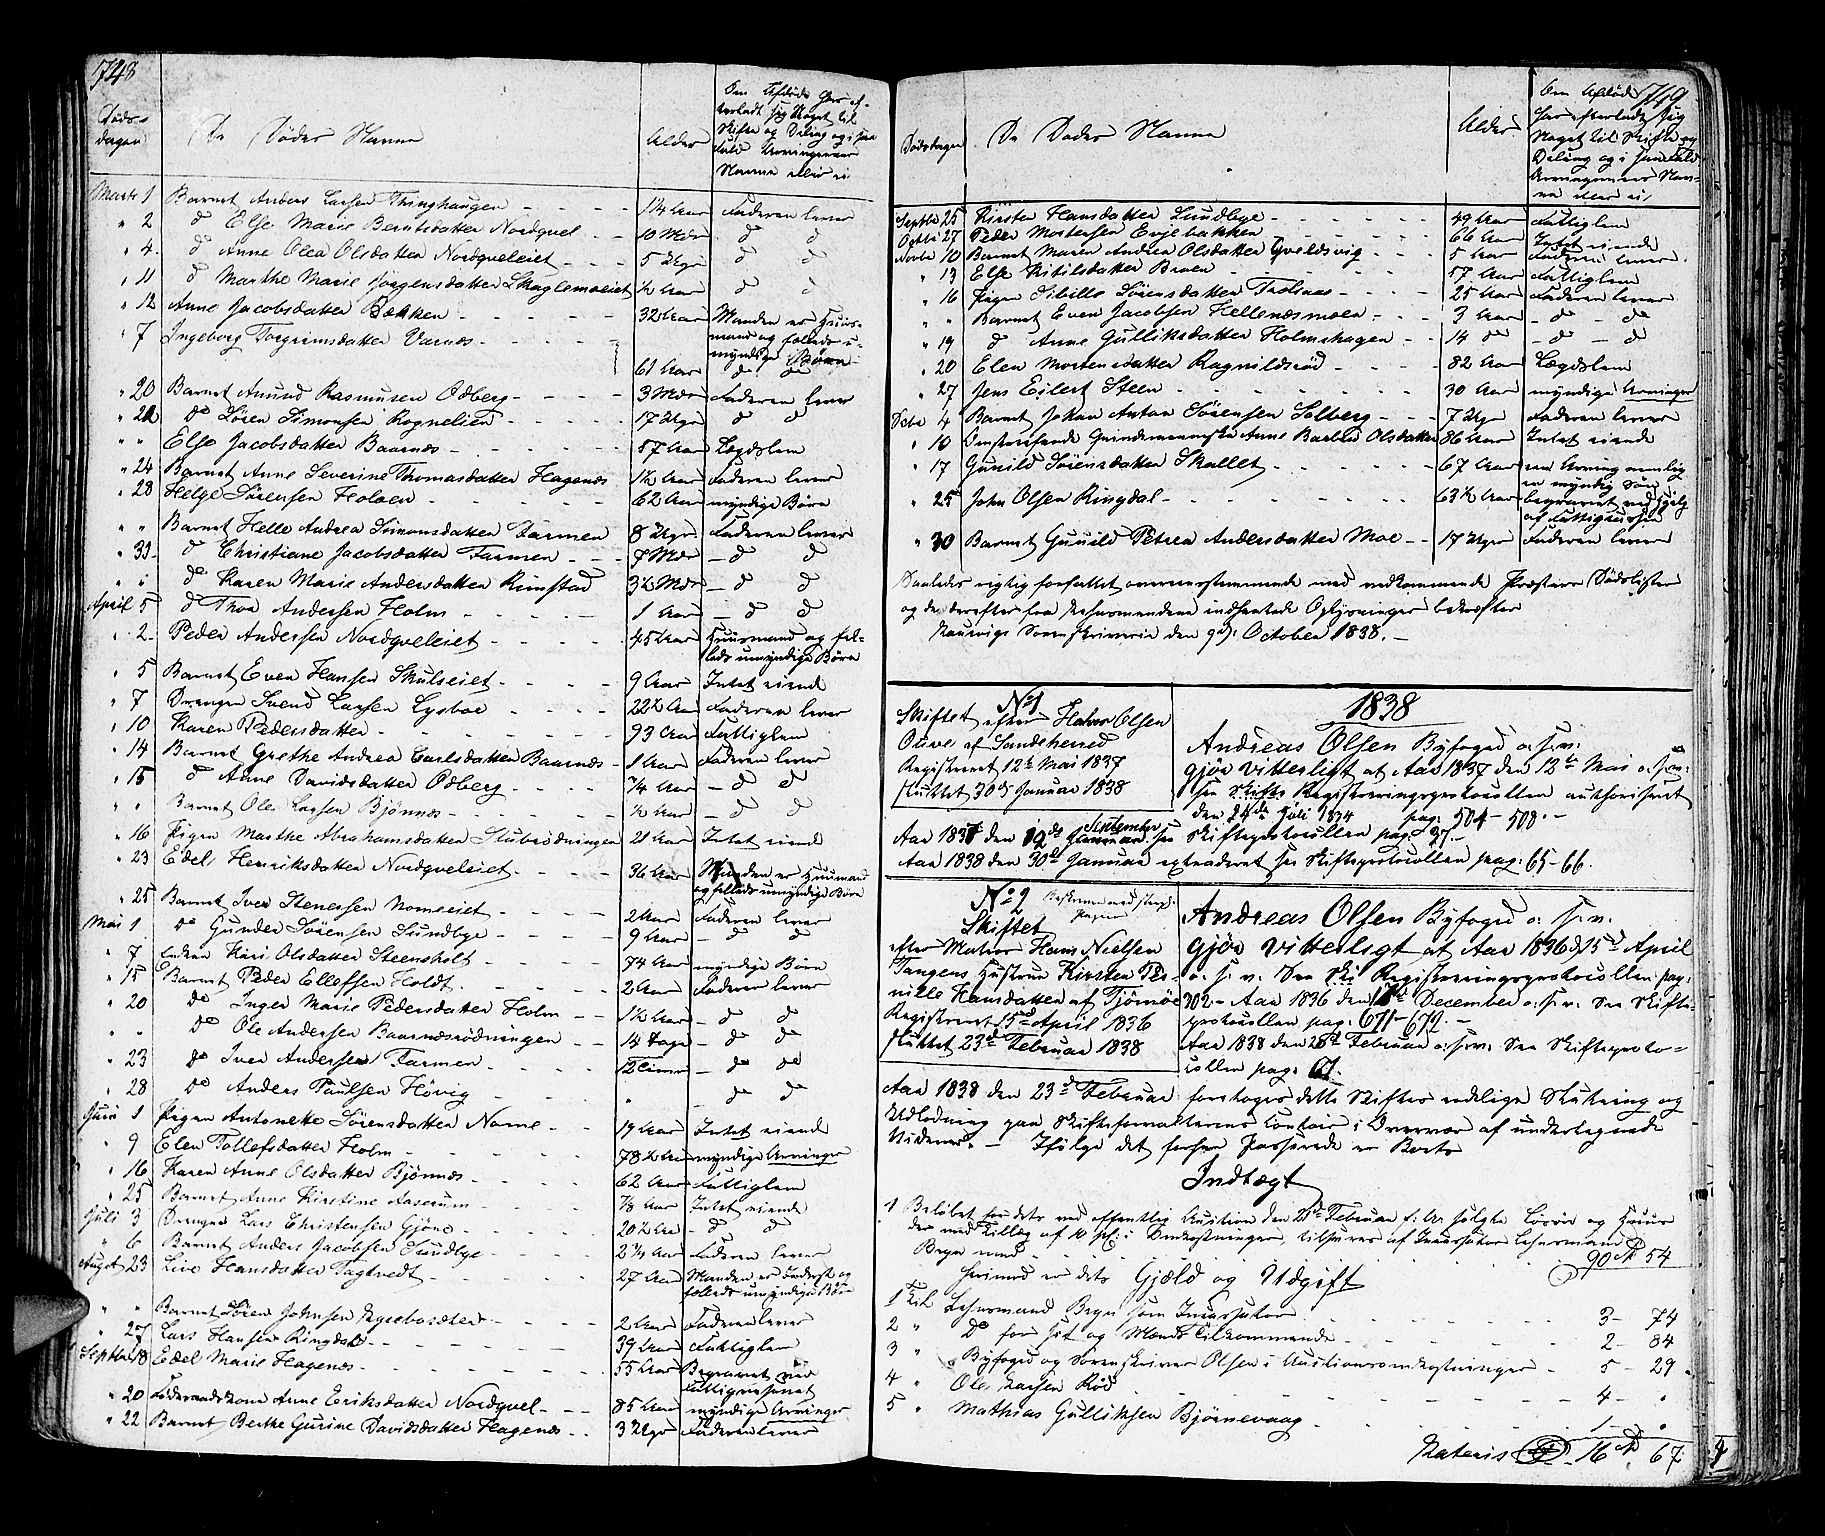 748
Døds-
dagen
De Dødes Navne
Alder
Om Afdøde har ef-
terladt sig Noget til
Skifte og Deling og i saa
Fald Arvingernes
Navne eller ei
Marts 1 Barnet Anders Larsen Thinghaugen 1 1/4 Aar Faderen lever
" 2 d Else Marie Berntsdatter Nordqvel 10 Mdr d d
" 4 d Anne Olea Olsdatter Nordqveleiet 5 Uger d d
" 11 d Marthe Marie Jørgensdatter Skaglemoeiet 1/2 Aar d d
" 12 Anne Jacobsdatter Bækken 32 Aar Manden er Huus-
mand og fælleds u-
myndige Børn
" 7 Ingeborg Torgrimsdatter Varnæs 61 Aar d d
" 20 Barnet Amund Rasmusen Odberg 3 Mdr Faderen lever
" 22 do Søren Simonsen Rognelien 17 Uger d d
" " Else Jacobsdatter Baarnæs 57 Aar Lægdslem
" 24 Barnet Anne Severine Thomasdatter Hagenæs 1 1/2 Aar Faderen lever
" 28 Helge Sørensen Holmen 62 Aar myndige Børn
" " Barnet Helle Andrea Simonsdatter Farmen 8 Uger Faderen lever
" 30 d Christiane Jacobsdatter Farmen 7 Mdr d d
" " d Karen Marie Andersdatter Rimstad 3 1/2 Mdr d d
April 5 d Thor Andersen Holm 1 Aar d d
" 2 Peder Andersen Nordqveleiet 45 Aar Huusmand og fæl-
leds umyndige Børn
" 5 Barnet Even Hansen Skulseiet 9 Aar Intet eiende
" 7 Drengen Svend Larsen Lysboe 22 1/2 Aar Faderen lever
" 10 Karen Pedersdatter 93 Aar Fattiglem
" 14 Barnet Grethe Andrea Carlsdatter Baarnæs 1 Aar Faderen lever
" 15 d Anne Davidsdatter Odberg 3/4 Aar d d
" " Barnet Ole Larsen Bjønnæs 1/2 Aar d d
" 16 Pigen Marthe Abrahamsdatter Stubrødningen 21 Aar Intet eiende
" 23 Edel Henriksdatter Nordqveleiet 36 Aar Manden er Huusmand
og fælleds umyndige Børn
" 25 Barnet Iver Stenersen Nomeeiet 2 Aar Faderen lever
Mai 1 do Gunder Sørensen Sundbye 9 Aar d d
" 7 Enken Kari Olsdatter Steensholt 74 Aar myndige Børn
" 15 Barnet Peder Ellefsen Holdt 2 Aar Faderen lever
" 20 do Inger Marie Pedersdatter Holm 1 1/2 Aar d d
" " do Ole Andersen Baarnæsrødningen 14 Dage d do
" 23 do Iver Andersen Farmen 12 Timer do do
" 28 do Anders Paulsen Høvig " do do
Juni 1 Pigen Antonette Sørensdatter Nome 17 Aar Intet eiende
" 9 Elen Tollefsdatter Holm 78 1/2 Aar myndige Arvinger
" 16 Karen Anne Olsdatter Bjønnæs 62 Aar Fattiglem
" 25 Barnet Anne Kirstine Aaserum 7/8 Aar Intet eiende
Juli 3 Drengen Lars Christensen Gjønæ 20 1/2 Aar d d
" 6 Barnet Anders Jacobsen Sundbye 2 1/4 Aar Faderen lever
August 23 Live Hansdatter Fagtvedt 27 Aar Manden er Inderst og
fælleds umyndige Børn
" " Barnet Søren Johnsen 2 Aar Faderen lever
" 27 Lars Hansen Ringdal 39 Aar Fattiglem
Septbr 18 Edel Marie Hagenæs 55 Aar Begravet ved
Fattigvæsenet
" 20 Føderaadskone Anne Eriksdatter Nordqvel 85 Aar myndige Arvinger
" 22 Barnet Berthe Gurine Davidsdatter Hagenæs 3 Uger Faderen lever
749
Dødsdagen
De Dødes Navne
Alder
Om Afdøde
har efterladt sig
Noget til Skifte og
Deling og i saa Fald
Arvingernes Nav-
ne eller ei
Septbr 25 Kirsten Hansdatter Sundbye 49 Aar Fattiglem
Octbr 27 Peder Mortensen Evjebakken 66 Aar Intet eiende
Novbr 10 Barnet Maren Andrea Olsdatter Qveldsvig 5 Aar Faderen lever
" 13 Else Kitilsdatter Broen 57 Aar Fattiglem
" 16 Pigen Sibille Sørensdatter Trolsaas 25 Aar Faderen lever
" " Barnet Even Jacobsen Hellenæsmoen 3 Aar do do
" 19 d Anne Gulliksdatter Holmshagen 14 do do d
" 20 Elen Mortensdatter Ragnildsrød 82 Aar Lægdslem
" 27 Jens Eilert Steen 30 Aar myndige Arvinger
Decbr 4 Barnet Johan Anton Sørensen Solberg 7 Uger Faderen lever
" 10 Omstreifende Qvindemenneske Anne Barbro Olsdatter 86 Aar Intet eiende
" 17 Gunild Sørensdatter Skallet 67 Aar en Arving nemlig
en myndig Søn
" 25 John Olsen Ringdal 63 1/2 Aar begravet ved Hjelp
af Fattigkassen
" 30 Barnet Gunild Petrea Andersdatter Moe 17 Uger Faderen lever
Saaledes rigtig forfattet overensstemmende med vedkommende Præsters Dødslister
og de derefter fra Lehnsmændene indhentede Oplysninger bekræfter
Laurvigs Sorenskriverie den 9de October 1838.
No 1
Skiftet efter Hans Olsen
Ouve af Sandeherred
Registreret 12te Mai 1837
sluttet 30de Januar 1838
1838
Andreas Olsen Byfoged o: s: v:
gjør vitterligt at Aar 1837 den 12te Mai o: s: v:
see Skifts Registreringsprotocollen authoriseret
den 24de Juli 1834 pag: 504-508.
Aar 1837 den 12de September see Skifteprotocollen pag: 37.
Aar 1838 den 30de Januar extraderet see Skifteprotocollen pag: 65-66.
No 2
Skiftet
efter Matros Hans Nielsen
Tangens Hustrue Kirsten Per-
nille Hansdatter af Tjømøe
Registreret 15de April 1836
sluttet 23de Februar 1838
Andreas Olsen Byfoged o: s: v:
gjør vitterligt at Aar 1836 d 15de April
o: s: v: See Skifts Registreringsprotocollen pag:
302- Aar 1836 den December o: s: v: See Skifte-
protocollen pag: 671-672.
Aar 1838 den Februar o: s: v: See Skifteproto-
collen pag: 67.
Aar 1838 den 23de Februar foretoges dette Skiftes endelige Slutning og
Udlodning paa Skifteforvalterens Contoir i Overvær af undertegnede
Vidner. Ifølge det forhen passerede er Boets
Indtægt
1 Beløbet for dets ved offentlig Auction den 21de Februar f: A: solgte Løsøre og Huus
der med Tillæg af 10 pCt: i Omkostninger, tilsvares af Incassator Lehnsmand
Bryn med 90 Sp 54
Herimod er dets Gjæld og Udgift
1 Til Lehnsmand Bryn som Incassator 3 - 74
2 " do for sit og Mænds Tilkommende 2 - 84
3 " Byfoged og Sorenskriver Olsen i Auctionsomkostninger 5 - 29
4 " Ole Larsen Rød 4 - "
5 " Mathias Gulliksen Bjørnevaag 1 - "
Lateris 16 Sp 67